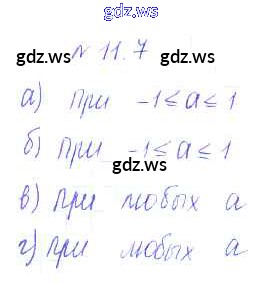 gdz.ws
№ 11.7
gdz.ws
а) при -1 ≤ a ≤ 1
б) при -1 ≤ a ≤ 1
gdz.ws
в) при любых a
г) при любых a
gdz.ws